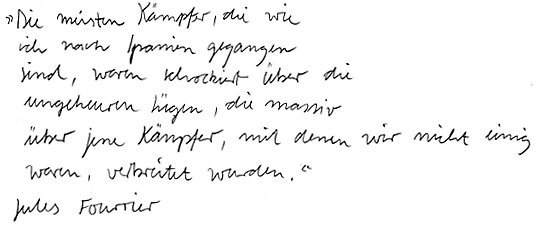 »Die meisten Kämpfer, die wie
ich nach Spanien gegangen
sind, waren schockiert über die
ungeheuren Lügen, die massiv
über jene Kämpfer, mit denen wir nicht einig
waren, verbreitet wurden.«
Jules Fourrier